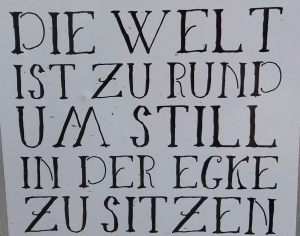 DIE WELT
IST ZU RUND
UM STILL
IN DER EGKE
ZU SITZEN